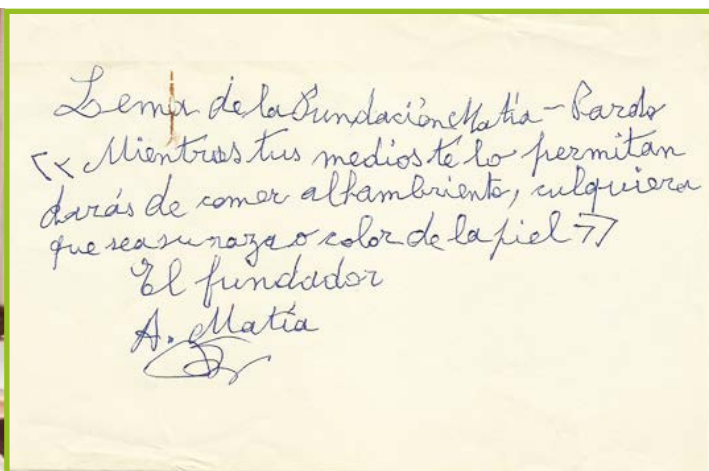 Lema de la Fundación Matía - Pardo
<< Mientras tus medios te lo permitan
darás de comer al hambriento, culquiera
que sea su raza o color de la piel >>
El fundador
A. Matía